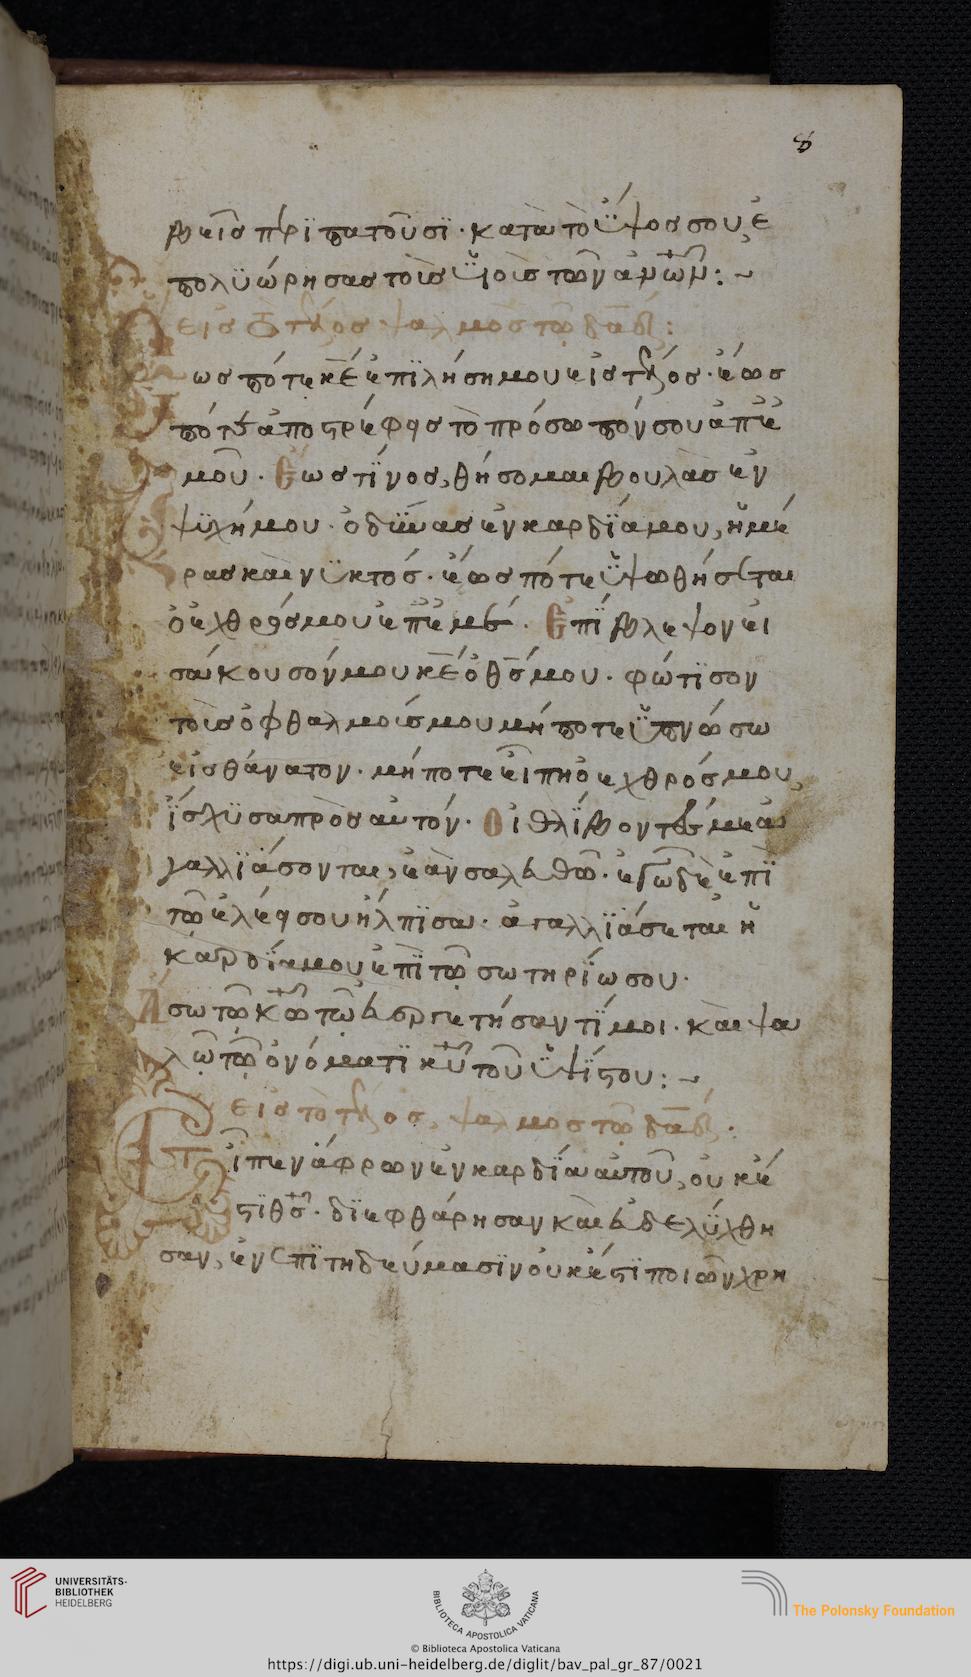 8
βεῖς περϊπατοῦσϊ · κατὰ τὸ ὕψος σου, ἐ
πολϋώρησας τοὺς ϋἱοὺς τῶν ἀν̅ω̅ν̅ :~
εἰς τὸ τέλος ψαλμὸς τῷ δα̅δ :
ως πότε κ̅ε̅ ἐπϊλήση μου εἰς τέλος · ἕως
πότε ἀποστρέφεις τὸ πρόσωπόν σου ἀπ' ἐ
μοῦ · Ἕως τϊνος θήσομαι βουλὰς ἐν
ψϋχῆ μου · ὀδϋνας ἐν καρδϊα μου, ἡμέ
ρας καὶ νϋκτός · ἕως πότε ὑψωθήσεται
ὁ ἐχθρός μου ἐπ' ἐμέ · Ἐπϊβλεψον εἰ
σάκουσόν μου κ̅ε̅ ὁ θ̅ς̅ μου · φώτϊσον
τοὺς ὀφθαλμούς μου μήποτε ὑπνώσω
εἰς θάνατον · μήποτε εἴπη ὁ ἐχθρός μου,
ἴσχϋσα πρὸς αὐτόν · Οἱ θλϊβοντές με ἀ
γαλλϊάσονται, ἐὰν σαλευθῶ · ἐγὼ δὲ ἐπϊ
τῷ ἐλέει σου ἤλπϊσα · ἀγαλλϊάσεται ἡ
καρδϊα μου ἐπϊ τῷ σωτηρϊω σου ·
Ἄσω τῷ κ̅ω̅ τῷ εὐεργετήσαντϊ μοι · καὶ ψα
λῶ τῷ ὀνόματϊ κ̅υ̅ τοῦ ὑψϊστου :~
εἰς τὸ τέλος, ψαλμος τῷ δα̅δ ·
Εἶπεν ἄφρων ἐν καρδϊα αὐτοῦ, οὐκ ἔ
στϊ θ̅ς̅ · δϊεφθάρησαν καὶ ἐβδελϋχθη
σαν, ἐν ἐπϊτηδεύμασϊν οὐκ ἔστϊ ποιῶν χρη
UNIVERSITÄTS-
BIBLIOTHEK
HEIDELBERG
BIBLIOTECA APOSTOLICA VATICANA
The Polonsky Foundation
© Biblioteca Apostolica Vaticana
https://digi.ub.uni-heidelberg.de/diglit/bav_pal_gr_87/0021